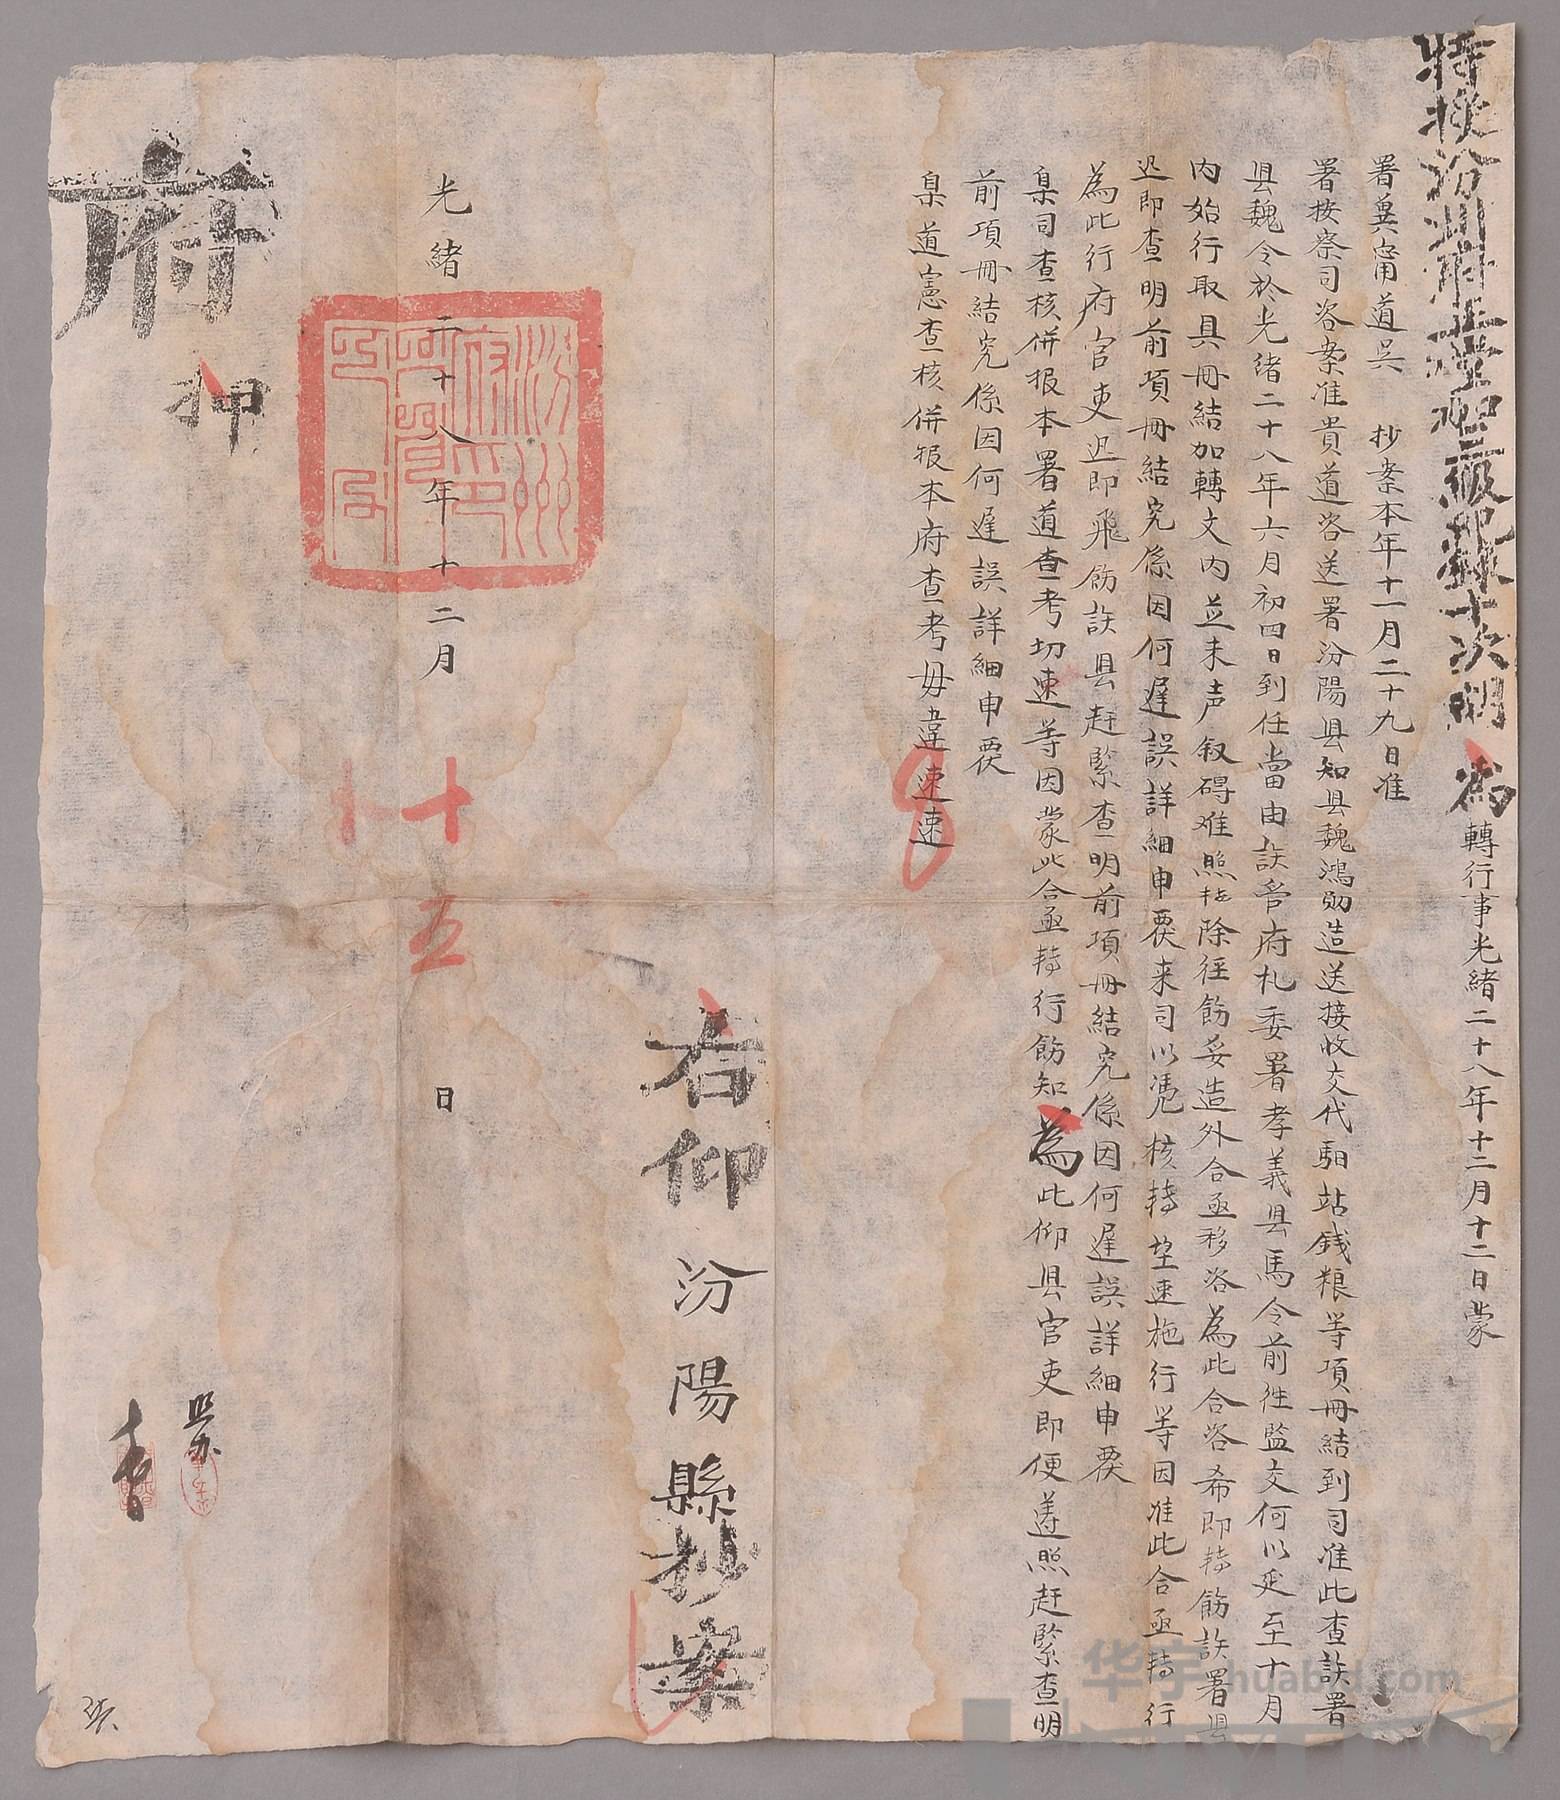 特授汾州府正堂加三級紀錄十次胡 為轉行事光緒二十八年十二月十二日蒙
署冀甯道吳 抄案本年十一月二十九日准
署按察司咨案准貴道咨送署汾陽县知县魏鴻勋造送接收交代馹站錢粮等項冊結到司准此查該署
县魏令於光緒二十八年六月初四日到任當由該管府札委署孝義县馬令前往監交何以延至十月
内始行取具冊結加轉文内並未声叙碍难照转除径飭妥造外合亟移咨為此合咨希即转飭該署县
迅即查明前項冊結究係因何遲誤詳細申覆来司以憑核转望速施行等因准此合亟转行
為此行府官吏迅即飛飭該县赶緊查明前項冊結究係因何遲誤詳細申覆
臬司查核併报本署道查考切速等因蒙此合亟转行飭知為此仰县官吏即便遵照赶緊查明
前項冊結究係因何遲誤詳細申覆
臬道憲查核併报本府查考毋違速速
右仰汾陽縣抄案
光緒二十八年十二月十五日
汾州府印
府押